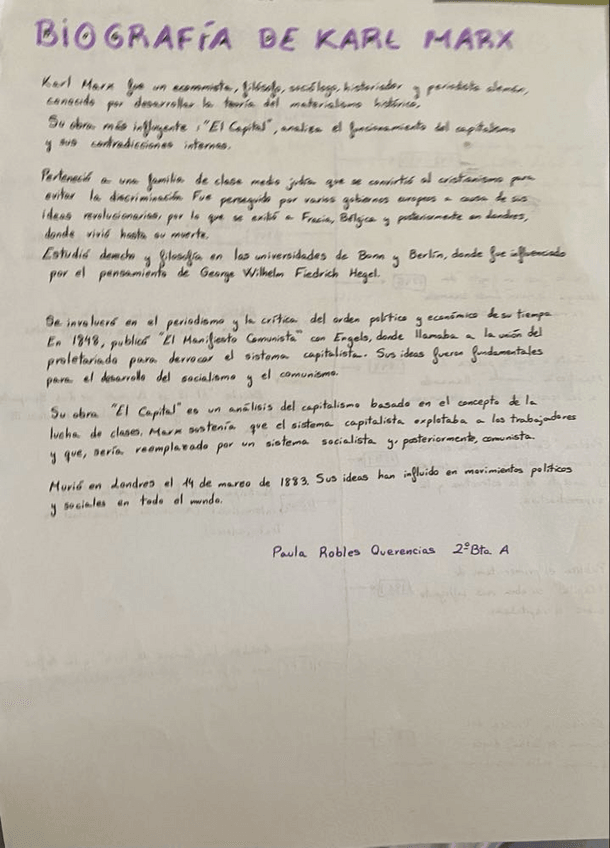 BIOGRAFÍA DE KARL MARX
Karl Marx fue un economista, filósofo, sociólogo, historiador y periodista alemán,
conocido por desarrollar la teoría del materialismo histórico.
Su obra más influyente, "El Capital", analiza el funcionamiento del capitalismo
y sus contradicciones internas.
Perteneció a una familia de clase media judía que se convirtió al cristianismo para
evitar la discriminación Fue perseguido por varios gobiernos europeos a causa de sus
ideas revolucionarias, por lo que se exilió a Fracia, Bélgica y posteriormente en Londres,
donde vivió hasta su muerte.
Estudió derecho y filosofía en las universidades de Bonn y Berlín, donde fue influenciado
por el pensamiento de George Wilhelm Fiedrich Hegel.
Se involucró en el periodismo y la crítica del orden político y económico de su tiempo
En 1848, publicó "El Manifiesto Comunista" con Engels, donde llamaba a la unión del
proletariado para derrocar el sistema capitalista. Sus ideas fueron fundamentales
para el desarrollo del socialismo y el comunismo.
Su obra "El Capital" es un análisis del capitalismo basado en el concepto de la
lucha de clases. Marx sostenía que el sistema capitalista explotaba a los trabajadores
y que, sería reemplazado por un sistema socialista y, posteriormente, comunista.
Murió en Londres el 14 de marzo de 1883. Sus ideas han influido en movimientos políticos
y sociales en todo el mundo.
Paula Robles Querencias 2ºBto. A